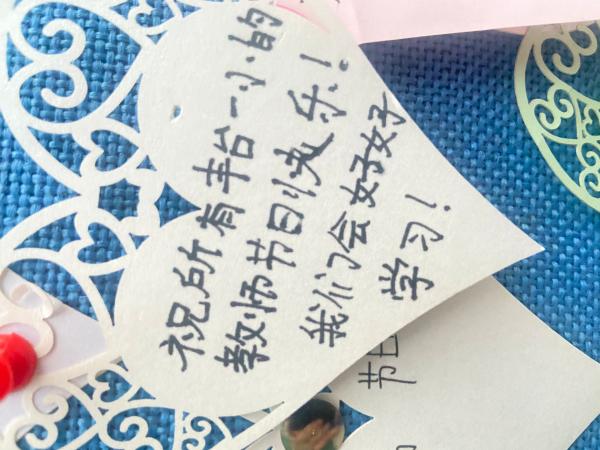 祝所有丰台一小的
教师节日快乐！
我们会好好
学习！
节日